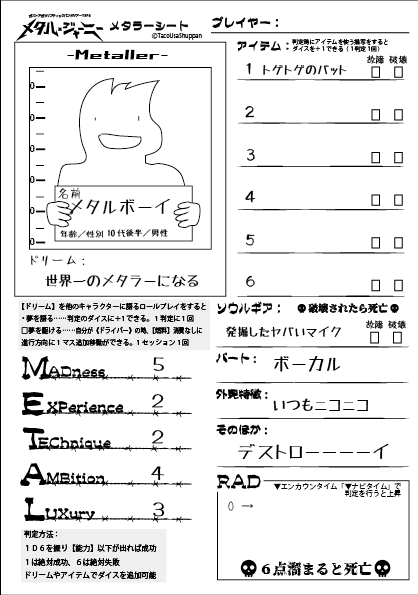 メタル・ジャーニー メタラーシート
©TacoUsaShuppan
プレイヤー：
-Metaller-
名前
メタルボーイ
年齢／性別 10代後半／男性
ドリーム：
世界一のメタラーになる
【ドリーム】を他のキャラクターに語るロールプレイをすると
・夢を語る……判定のダイスに+1できる。１判定に１回
□夢を駆ける……自分が《ドライバー》の時、【燃料】消費なしに
進行方向に１マス追加移動ができる。１セッション１回
MADness 5
EXPerience 2
TEChnique 2
AMBition 4
LUXury 3
判定方法：
１Ｄ６を振り【能力】以下が出れば成功
１は絶対成功、６は絶対失敗
ドリームやアイテムでダイスを追加可能
アイテム：判定時にアイテムを使う描写をすると
ダイスを＋１できる（１判定１回）
故障 破壊
1 トゲトゲのバット □ □
2 □ □
3 □ □
4 □ □
5 □ □
6 □ □
ソウルギア： 破壊されたら死亡
故障 破壊
発掘したヤバいマイク □ □
パート： ボーカル
外見特徴：
いつもニコニコ
そのほか：
デストローーーーイ
RAD ▼エンカウンタイム「▼ナビタイム」で
判定を行うと上昇
0 →
６点溜まると死亡